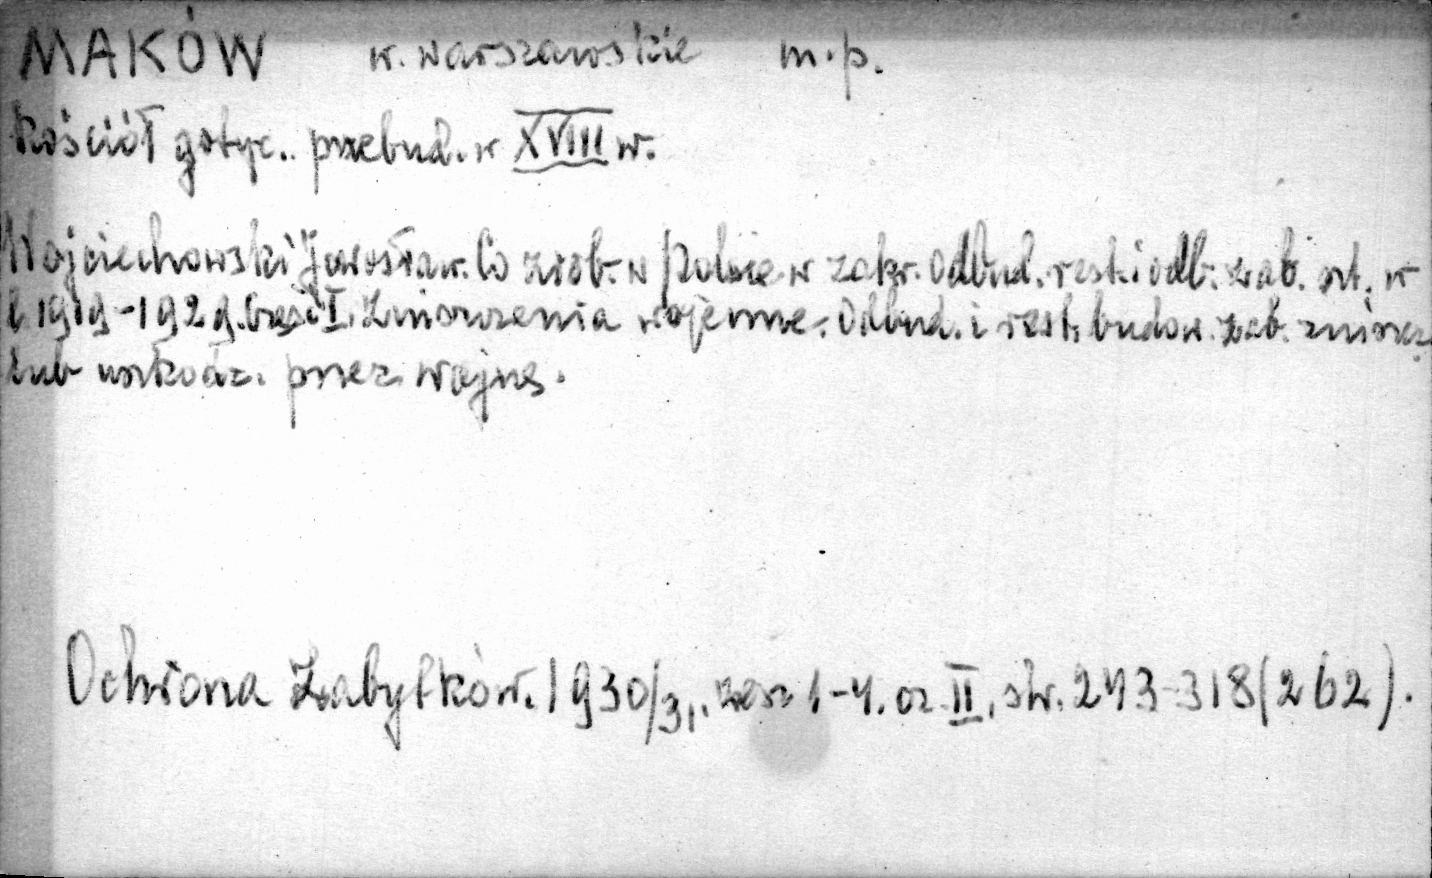 MAKÓW w. warszawskie m.p.
Kościół gotyc.. przebud. w XVIII w.
Wojciechowski Jarosław. Co zrob. w Polsce w zakr. Odbud. rest. i odb. zab. szt. w
l. 1919-1929. Część I. Zniszczenia wojenne. Odbud. i rest. budow. zab. zniszcz.
lub uszkodz. przez wojnę.
Ochrona Zabytków. 1930/31,. zesz 1-4. cz. II, str. 243-318 (262).